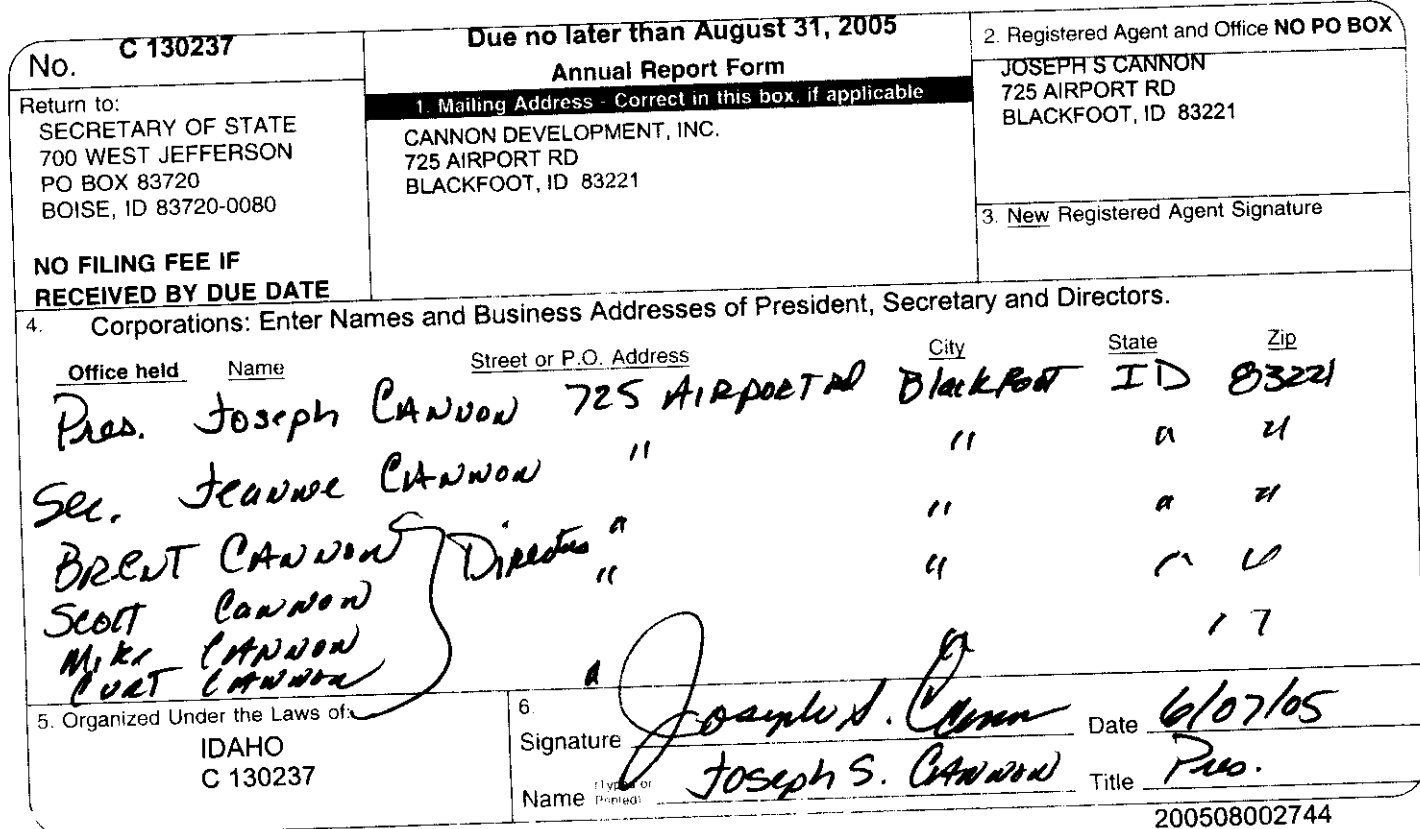 No. C 130237
Return to:
SECRETARY OF STATE
700 WEST JEFFERSON
PO BOX 83720
BOISE, ID 83720-0080
NO FILING FEE IF
RECEIVED BY DUE DATE
Due no later than August 31, 2005
Annual Report Form
1. Mailing Address - Correct in this box, if applicable
CANNON DEVELOPMENT, INC.
725 AIRPORT RD
BLACKFOOT, ID 83221
2. Registered Agent and Office NO PO BOX
JOSEPH S CANNON
725 AIRPORT RD
BLACKFOOT, ID 83221
3. New Registered Agent Signature
4. Corporations: Enter Names and Business Addresses of President, Secretary and Directors.
Office held Name Street or P.O. Address City State Zip
Pres. Joseph CANNON 725 AIRPORT RD Blackfoot ID 83221
Sec. Jeanne CANNON " " " "
BRENT CANNON Directors " " " "
Scott Cannon " " " "
Mike CANNON
Curt CANNON " "
5. Organized Under the Laws of:
IDAHO
C 130237
6.
Signature Joseph S. Cannon Date 6/07/05
Name (Typed or Printed) Joseph S. CANNON Title Pres.
200508002744